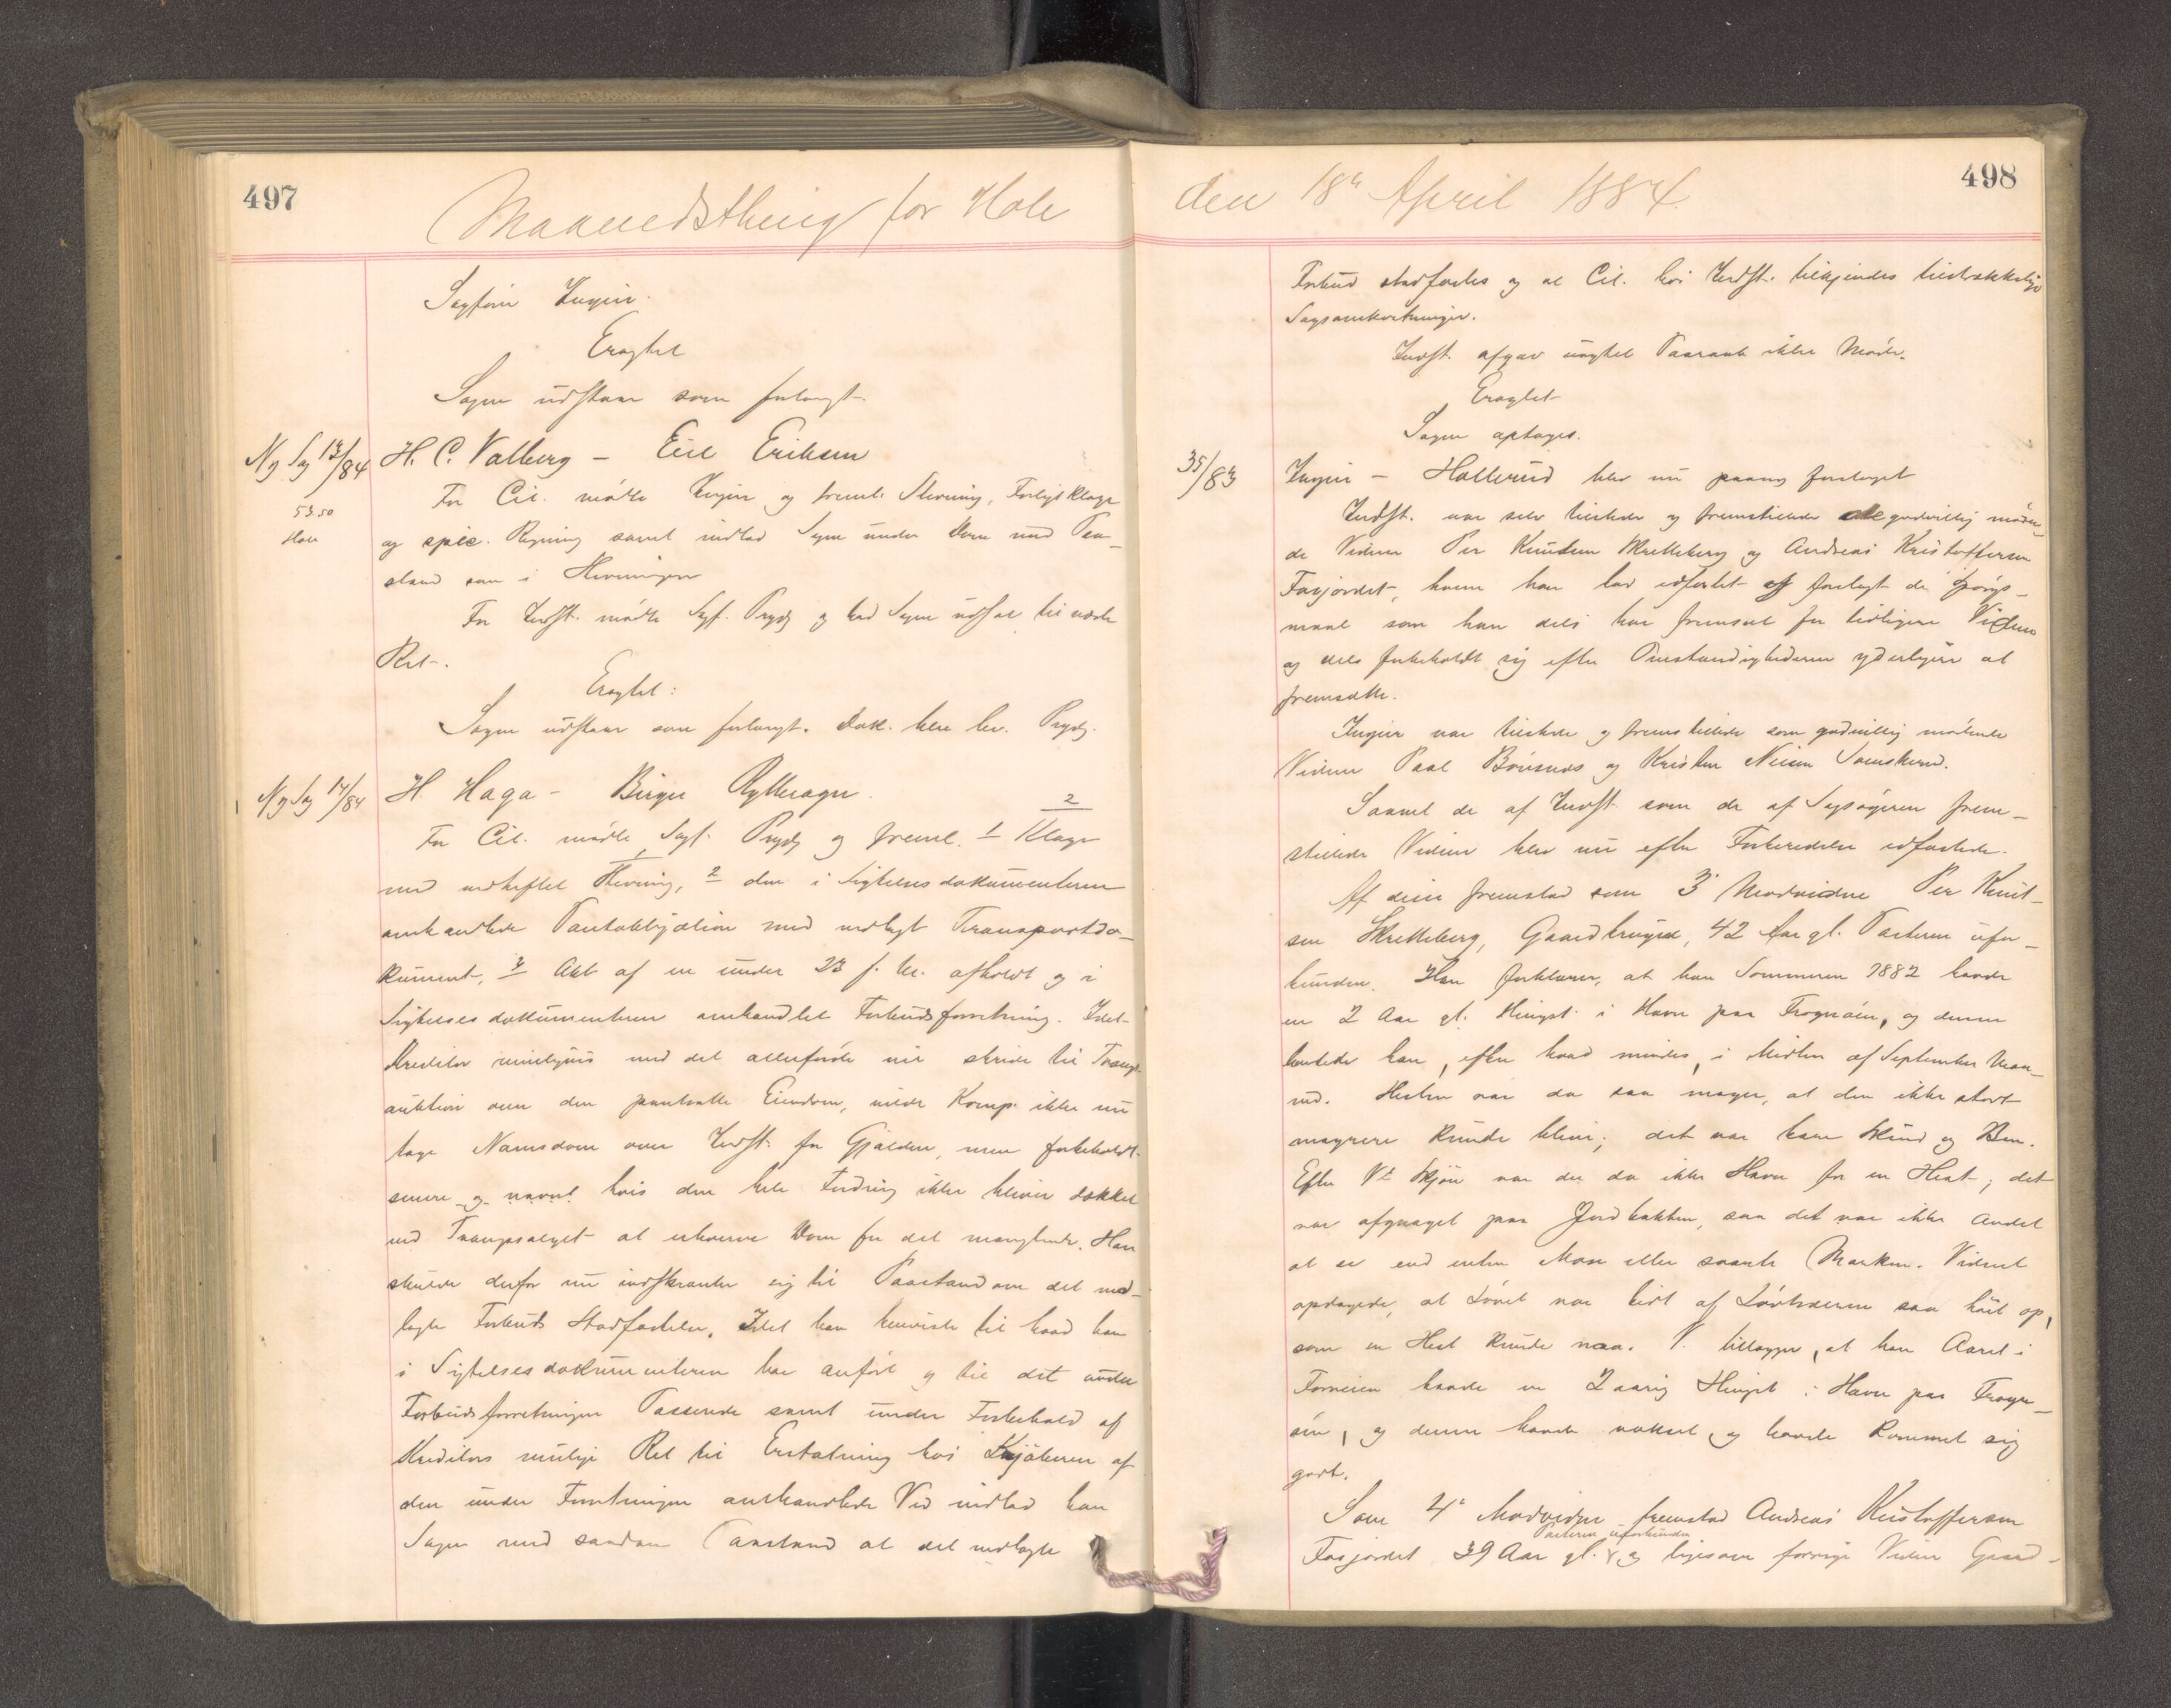 497
Maanedsthing for Hole
Sagfører Ingier.
Eragtet
Sagen udstaar som forlangt.
Ny Sag 13/84
53.50
Hole
H. C. Valberg – Eriksen
For Cit. mødte Ingier og freml. Stevning, Forligsklage
og spec. Regning samt indlod Sagen under Dom med Paa-
stand som i Stevningen
For Indst. mødte Sagf. Prydz og bad Sagen udsat til næste
Ret.
Eragtet:
Sagen udstaar som forlangt. Dok. blev lev. Prydz.
Ny Sag 14/84
H. Haga – Birger Rytterager.
For Cit. mødte Sagf. Prydz og freml. 1 Klage
med vedheftet Stevning, 2 den i Sigtelsesdokumenterne
omhandlede Panteobligation med vedlagt Transportdo-
kument, 3 Akt af en under 23 f. M. afholdt og i
Sigtelsesdokumenterne omhandlet Forbudsforretning. Idet
Kreditor muligens med det allerførste vil skride til Tvangs-
auktion over den pantsatte Eiendom, vilde Komp. ikke nu
tage Namsdom over Indst. for Gjælden, men forbeholdt
senere og navnl. hvis den hele Fordring ikke bliver dækket
ved Tvangssalget at erhverve Dom for det manglende. Han
skulde derfor nu indskrænke sig til Paastand om det ned-
lagte Forbuds Stadfæstelse. Idet han henviste til hvad han
i Sigtelsesdokumenterne har anført og til det under
Forbudsforretningen Passerede samt under Forbehold af
Kreditors mulige Ret til Erstatning hos Kjøberen af
den under Forretningen omhandlede Ved indlod han
Sagen med saadan Paastand at det nedlagte
498
den 18de April 1884.
Forbud stadfæstes og at Cit. hos Indst. tilkjendes tilstrækkelige
Sagsomkostninger.
Indst. afgav uagtet Paaraab ikke Møde.
Eragtet
Sagen optages.
35/83
Ingier – Hallerud blev nu paany foretaget
Indst. var selv tilstede og fremstillede de godvillig møden-
de Vidner Per Knutsen Skretteberg og Andreas Kristoffersen
Fosjordet, hvem han lod edfæstet forelagt de Spørgs-
maal som han dels har fremsat for tidligere Vidner
og dels forbeholdt sig efter Omstændighederne yderligere at
fremsætte.
Ingier var tilstede og fremstillede som godvillig mødende
Vidner Paal og Kristen
Saavel de af Indst. som de af Sagsøgeren frem-
stillede Vidner blev nu efter Forberedelse edfæstede.
Af disse fremstod som 3' Modvidne Per Knut-
sen Skretteberg, Gaardbruger, 42 Aar gl. Parterne ufor-
bunden. Han forklarer, at han Sommeren 1882 havde
en 2 Aar gl. Hingst i Havn paa Frognøen, og denne
hentede han, efter hvad mindes, i Midten af September Maa-
ned. Hesten var da saa mager, at den ikke stort
magrere kunde blive; det var bare Skind og Ben.
Efter Vts Skjøn var der da ikke Havn for en Hest; det
var afgnaget paa Jordbakken, saa det var ikke andet
at se end enten Mose eller svarte Marken. Vidnet
opdagede, at Løvet var bidt af Løvtræerne saa høit op,
som en Hest kunde naa. V. tillægger, at han Aaret i
Forveien havde en 2 aarig Hingst i Havn paa Frogn-
øen, og denne havde vokset og havde kommet sig
godt.
Som 4' Modvidne fremstod Andreas Kristoffersen
Parterne uforbunden
Fosjordet 39 Aar gl. og ligesom forrige Vidne Gaard-